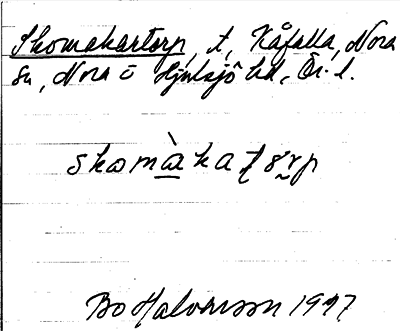 Skomakartorp, t, Kåfalla, Nora
sn, Nora o Hjulsjö hd, Ör. l.
skomàkatorp
Bo Halvarsson 1977